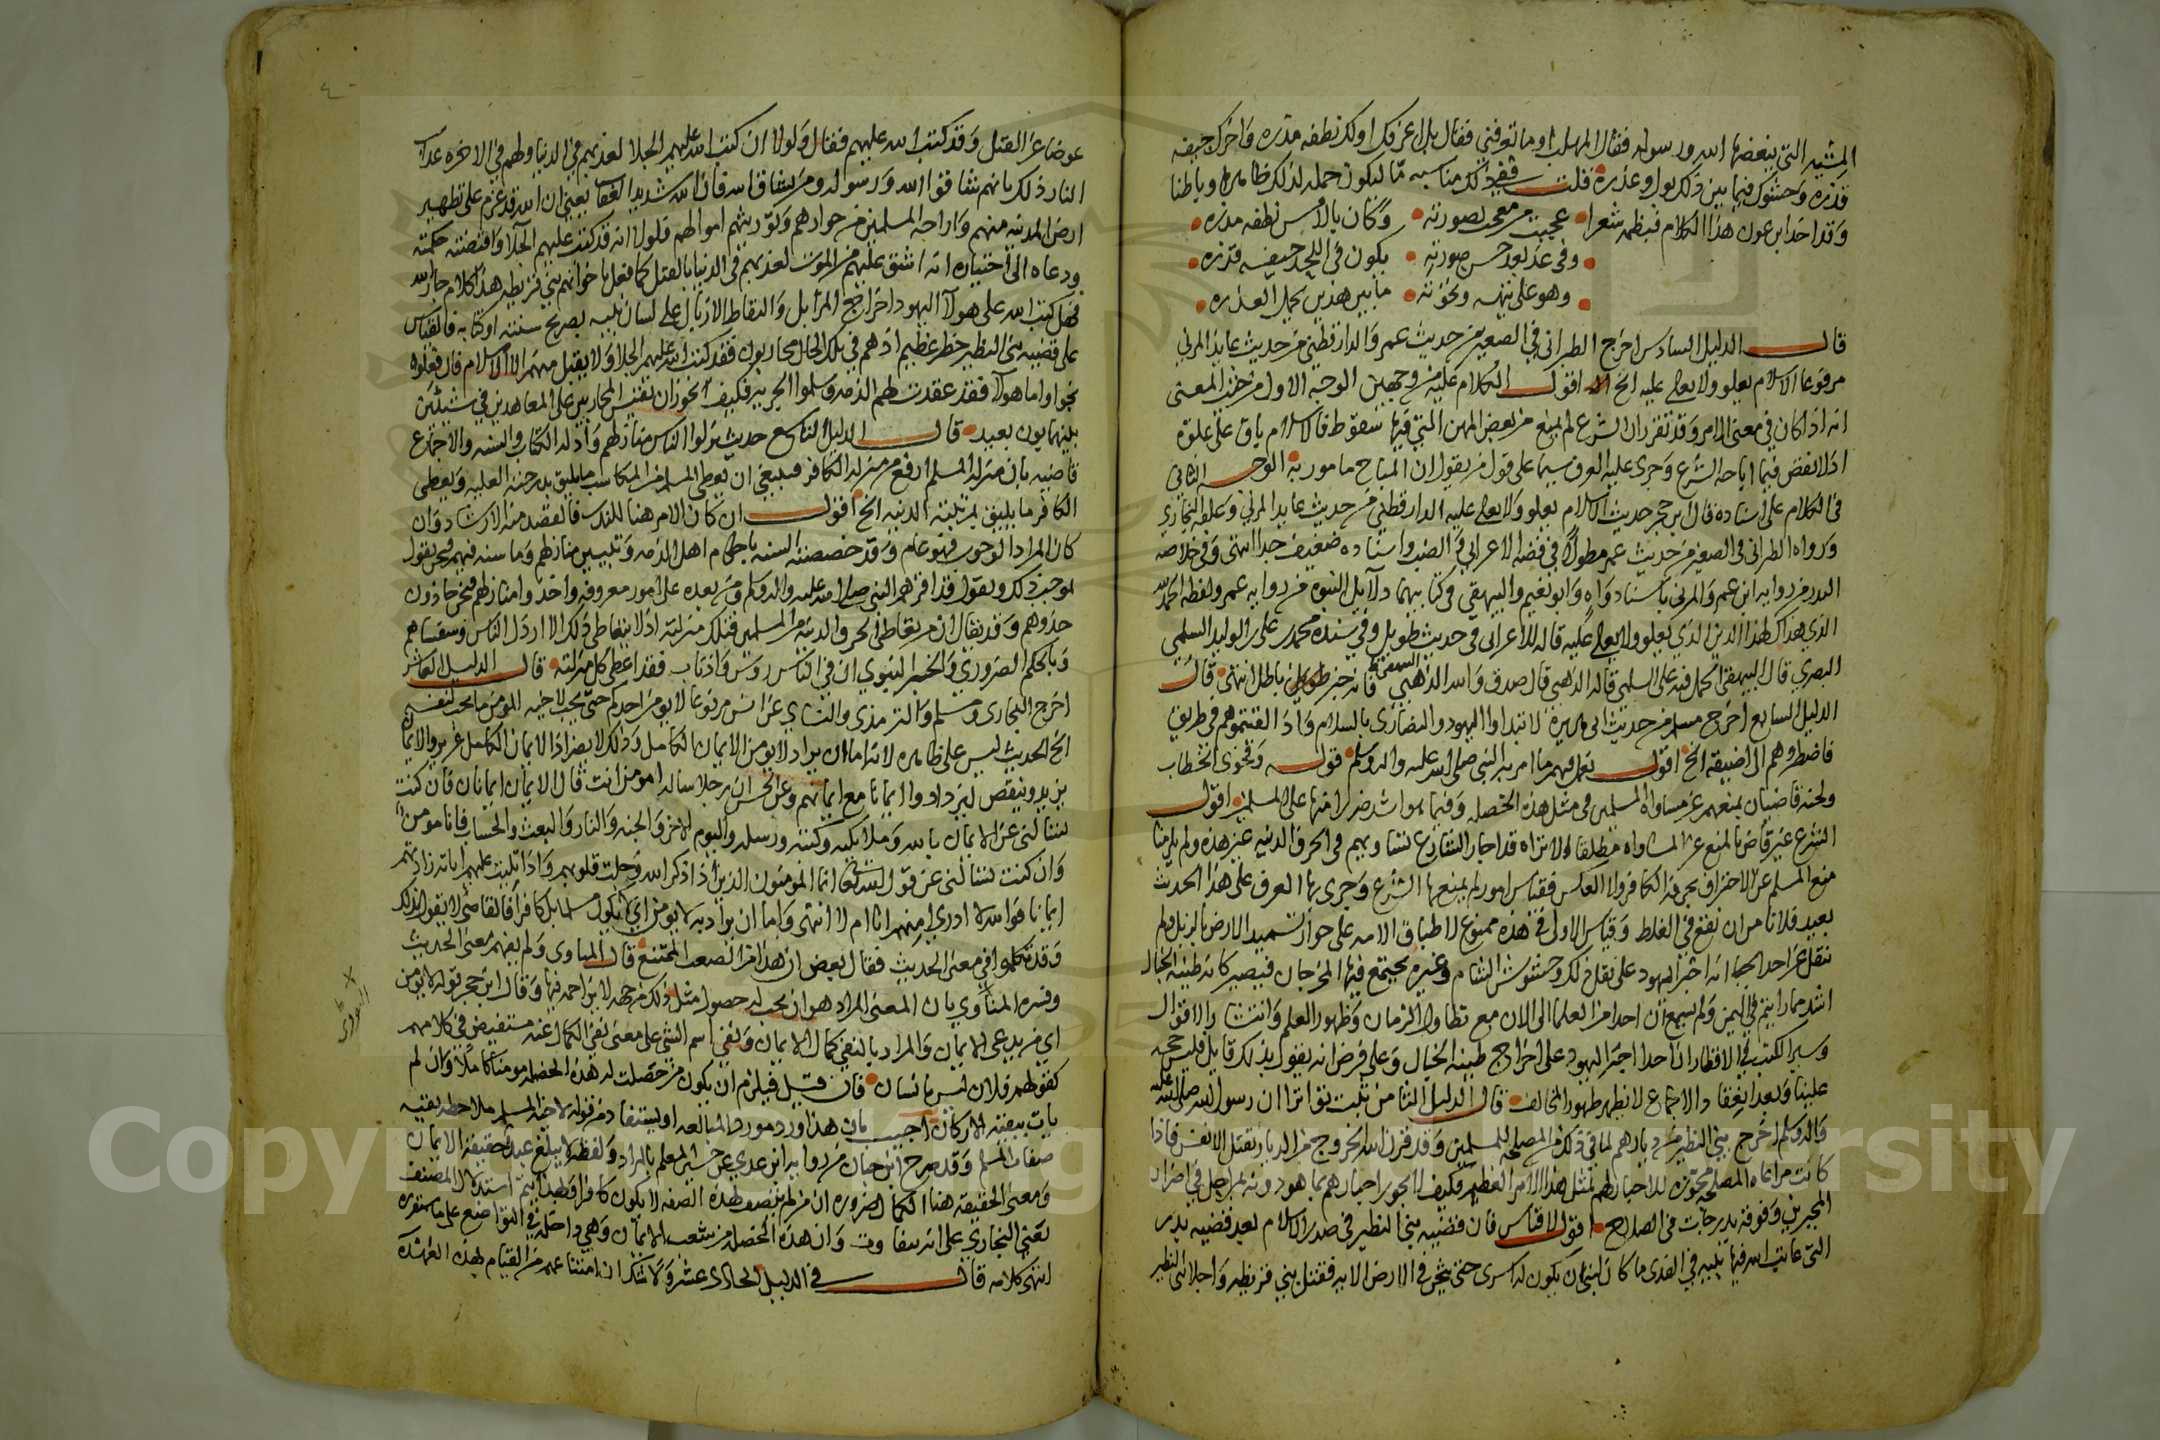 المشيه التي يبغضها الله ورسوله فقال المهلب اوما تعرفني فقال بل اعرفك اولك نطفه مذره واخرك جيفه
قذره وحشوك فيما بين ذلك بول وعذره قلت ففي ذلك مناسبه لما ليكون حمله لذلك ظاهرا وباطنا
وقد اخذ ابن عوف هذا الكلام فنظمه شعرا عجبت من معجب بصورته وكان بالامس نطفه مذره
وفي غد بعد حسن صورته يكون في اللحد جيفه قذره
وهو على تيهه ونخوته ما بين هذين يحمل العذره
قال الدليل السادس اخرج الطبراني في الصغير من حديث عمر والدارقطني من حديث عايذ المزني
مرفوعا الاسلام يعلو ولا يعلى عليه الخ اقول الكلام عليه من وجهين الوجه الاول من حيث المعنى
انه اذا كان في معنى الامر وقد تقرر ان الشرع لم يمنع من بعض المهن التي فيها سقوط فالاسلام باق على علوه
اذ لا نقص فيما اباحه الشرع وجرى عليه العرف سيما على قول من يقول ان المباح مامور به الوجه الثاني
في الكلام على اسناده قال ابن حجر حديث الاسلام يعلو ولا يعلى عليه الدارقطني من حديث عايذ المزني وعلقه البخاري
ورواه الطبراني في الصغير من حديث عمر مطولا في قصة الاعرابي في الضب واسناده ضعيف جدا انتهى وفي خلاصه
البدر من روايه ابن عمر والمزني باسناد واه وابو نعيم والبيهقي في كتابيهما دلايل النبوه من روايه عمر ولفظه الحمد لله
الذي هداك لهذا الدين الذي يعلو ولا يعلى عليه قاله للاعرابي في حديث طويل وفي سنده محمد بن علي بن الوليد السلمي
البصري قال البيهقي الحمل فيه على السلمي قاله الذهبي قال صدق والله البيهقي فانه خبر باطل انتهى قال
الدليل السابع اخرج مسلم من حديث ابي هريرة لا تبداوا اليهود والنصارى بالسلام واذا لقيتموهم في طريق
فاضطروهم الى اضيقه الخ اقول نعمل فيهم ما امر به النبي صلى الله عليه واله وسلم قوله وفحوى الخطاب
ولحنه قاضيان بمنعهم عن مساواة المسلمين في مثل هذه الخصله وفيما هو اشد ضررا منها على المسلمين اقول
الشرع غير قاض بالمنع عن المساواه مطلقا الا تراه قد اجاز الشارع تساويهم في الحرف الدنيه غير هذه ولم يلزمنا
منع المسلم عن الاحتراف بحرفة الكافر ولا العكس فقياس امور لم يمنعها الشرع وجرى بها العرف على هذا الحديث
بعيد فلا نامن ان نقع في الغلط وقياس الاولى في هذه ممنوع لاطباق الامه على جواز تسميد الارض بالزبل ولم
ينقل عن احد ايجابا انه اجبر اليهود على نقل ذلك وحشوش الشام وغيره يجتمع فيها الخرجان فيصير كانه طينة الخبال
اشد مما رايتم في اليمن ولم نسمع ان احدا من العلما الى الان مع تطاول الزمان وظهور العلم وانتشار الاقوال
وسير الكتب في الاقطار ان احدا اجبر اليهود على اخراج طينة الخبال وعلى فرض انه يقول بذلك قايل فليس حجه
علينا وبعد انعقاد الاجماع لا نظهر ظهور المخالف قال الدليل الثامن ثبت تواترا ان رسول الله صلى الله عليه
واله وسلم اخرج بني النضير من ديارهم لما في ذلك من المصلحه للمسلمين وقد قرن الله الخروج من الديار بقتل الانفس فاذا
كانت مراعاة المصلحه مجوزه لاجبارهم بمثل هذا الامر العظيم فكيف لا يجوز اجبارهم بما هو دونه بمراحل في اضرار
المجبرين وفوقه بدرجات في الصلاح اقول لا قياس فان قضيه بني النضير في صدر الاسلام بعد قضيه بدر
التي عاتب الله فيها نبيه في الفدى ما كان لنبي ان يكون له اسرى حتى يثخن في الارض الايه فقتل بني قريظه واجلا بني النظير
عوضا عن القتل وقد كتب الله عليهم فقال ولولا ان كتب الله عليهم الجلا لعذبهم في الدنيا ولهم في الاخره عذاب
النار ذلك بانهم شاقوا الله ورسوله ومن يشاق الله فان الله شديد العقاب يعني ان الله قد عزم على تطهير
ارض المدينه منهم واراحة المسلمين من جوارهم وتوريثهم اموالهم فلولا انه قد كتب عليهم الجلا واقتضته حكمته
ودعاه الى اختياره انه اشق عليهم من الموت لعذبهم في الدنيا بالقتل كما فعل باخوانهم بني قريظه هذا كلام جار الله
فهل كتب الله على هولا اليهود اخراج المزابل والتقاط الازبال على لسان نبيه بصريح سنته او كتابه فالقياس
على قضيه بني النظير خطر عظيم اذ هم في تلك الحال محاربون فقد كتب الله عليهم الجلا ولا يقبل منهم الا الاسلام قال فعلوه
نجوا واما هولا فقد عقدت لهم الذمه وسلموا الجزيه فكيف يجوز ان نقيس المحاربين على المعاهدين في شيئين
بينهما بون بعيد قال الدليل التاسع حديث نزلوا الناس منازلهم وادلة الكتاب والسنه والاجماع
قاضيه بان منزلة المسلم ارفع من منزلة الكافر فينبغي ان يعطى المسلم من المكاسب ما يليق بدرجته العليه ويعطى
الكافر ما يليق بمرتبته الدنيه الخ اقول ان كان الامر هنا للندب فالقصد منه الارشاد وان
كان المراد الوجوب فهو عام وقد خصصته السنه باحكام اهل الذمه وتبيين منازلهم وما سنه فيهم فنحن نقول
بموجب ذلك ونقول قد اقرهم النبي صلى الله عليه واله وسلم ومن بعده على امور معروفه واخذ وامنازلهم فنحن حاذون
حذوهم وقد يقال ان من يتعاطى الحرف الدنيه من المسلمين فتلك منزلته اذ لا يتعاطى ذلك الا ارذل الناس وسقساهم
وبالحكم الضروري والخبر النبوي ان في الناس روس واذناب فقد اعطي كل منزلته قال الدليل العاشر
اخرج البخاري ومسلم والترمذي والنساي عن انس مرفوعا لا يومن احدكم حتى يحب لاخيه المومن ما يحب لنفسه
الخ الحديث ليس على ظاهره لانه اما ان يراد لا يومن الايمان الكامل وذلك لا يضر اذ الايمان الكامل عزيز والايمان
يزيد وينقص ليزدادوا ايمانا مع ايمانهم وعن الحسن ان رجلا ساله امومن انت قال الايمان ايمانان فان كنت
تسالني عن الايمان بالله وملايكته وكتبه ورسله واليوم الاخر والجنه والنار والبعث والحساب فانا مومن
وان كنت تسالني عن قول الله تعالى انما المومنون الذين اذا ذكر الله وجلت قلوبهم واذا تليت عليهم اياته زادتهم
ايمانا فوالله لا ادري امنهم انا ام لا انتهى واما ان يراد به لا يومن اي لا يكون مسلما بل كافرا فالقاضي لا يقول بذلك
وقد تكلموا في معنى الحديث فقال بعض ان هذا من الصعب الممتنع قال المناوي ولم يفهم معنى الحديث
وفسره المناوي بان المعنى المراد هو ان يحب له حصول مثل ذلك من جهه لا يزاحمه فيها وقال ابن حجر قوله لا يومن
اي من يدعي الايمان والمراد بالنفي كمال الايمان ونفي اسم الشي على معنى نفي الكمال عنه مستفيض في كلامهم
كقولهم فلان ليس بانسان فان قيل فيلزم ان يكون من حصلت له هذه الخصله مومنا كاملا وان لم
يات ببقية الاركان اجيب بان هذا ورد مورد المبالغه او يستفاد من قوله لاخيه المسلم ملاحظه بقيه
صفات المسلم وقد صرح ابن حبان من روايه ابن عدي عن حسين المعلم بالمراد ولفظه لا يبلغ عبد حقيقة الايمان
ومعنى الحقيقه هنا الكمال ضروره ان من لم يتصف بهذه الصفه لا يكون كافرا وبهذا يتم استدلال المصنف
يعني البخاري على انه يتفاوت وان هذه الخصله من شعب الايمان وهي داخله في التواضع على ما سنقرره
انتهى كلامه قال في الدليل الحادي عشر ولا شك ان امتناعهم من القيام بهذه العهده